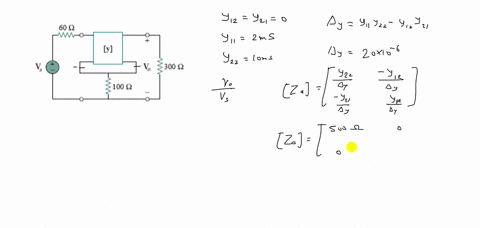 60 Ω
[y]
+
V_s
V_o
300 Ω
100 Ω
−
y₁₂ = y₂₁ = 0
y₁₁ = 2mS
y₂₂ = 10mS
V_o / V_s
Δy = y₁₁ y₂₂ − y₁₂ y₂₁
Δy = 20×10⁻⁶
y₂₂/Δy −y₁₂/Δy
−y₂₁/Δy
500 Ω 0
0